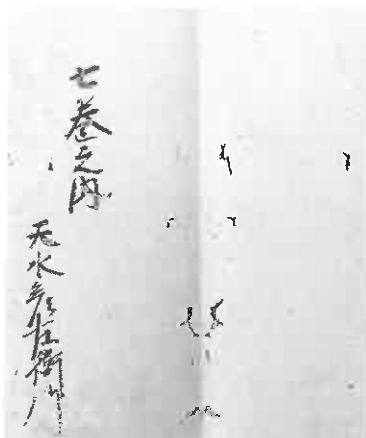 七巻之内
天水夛右衛門